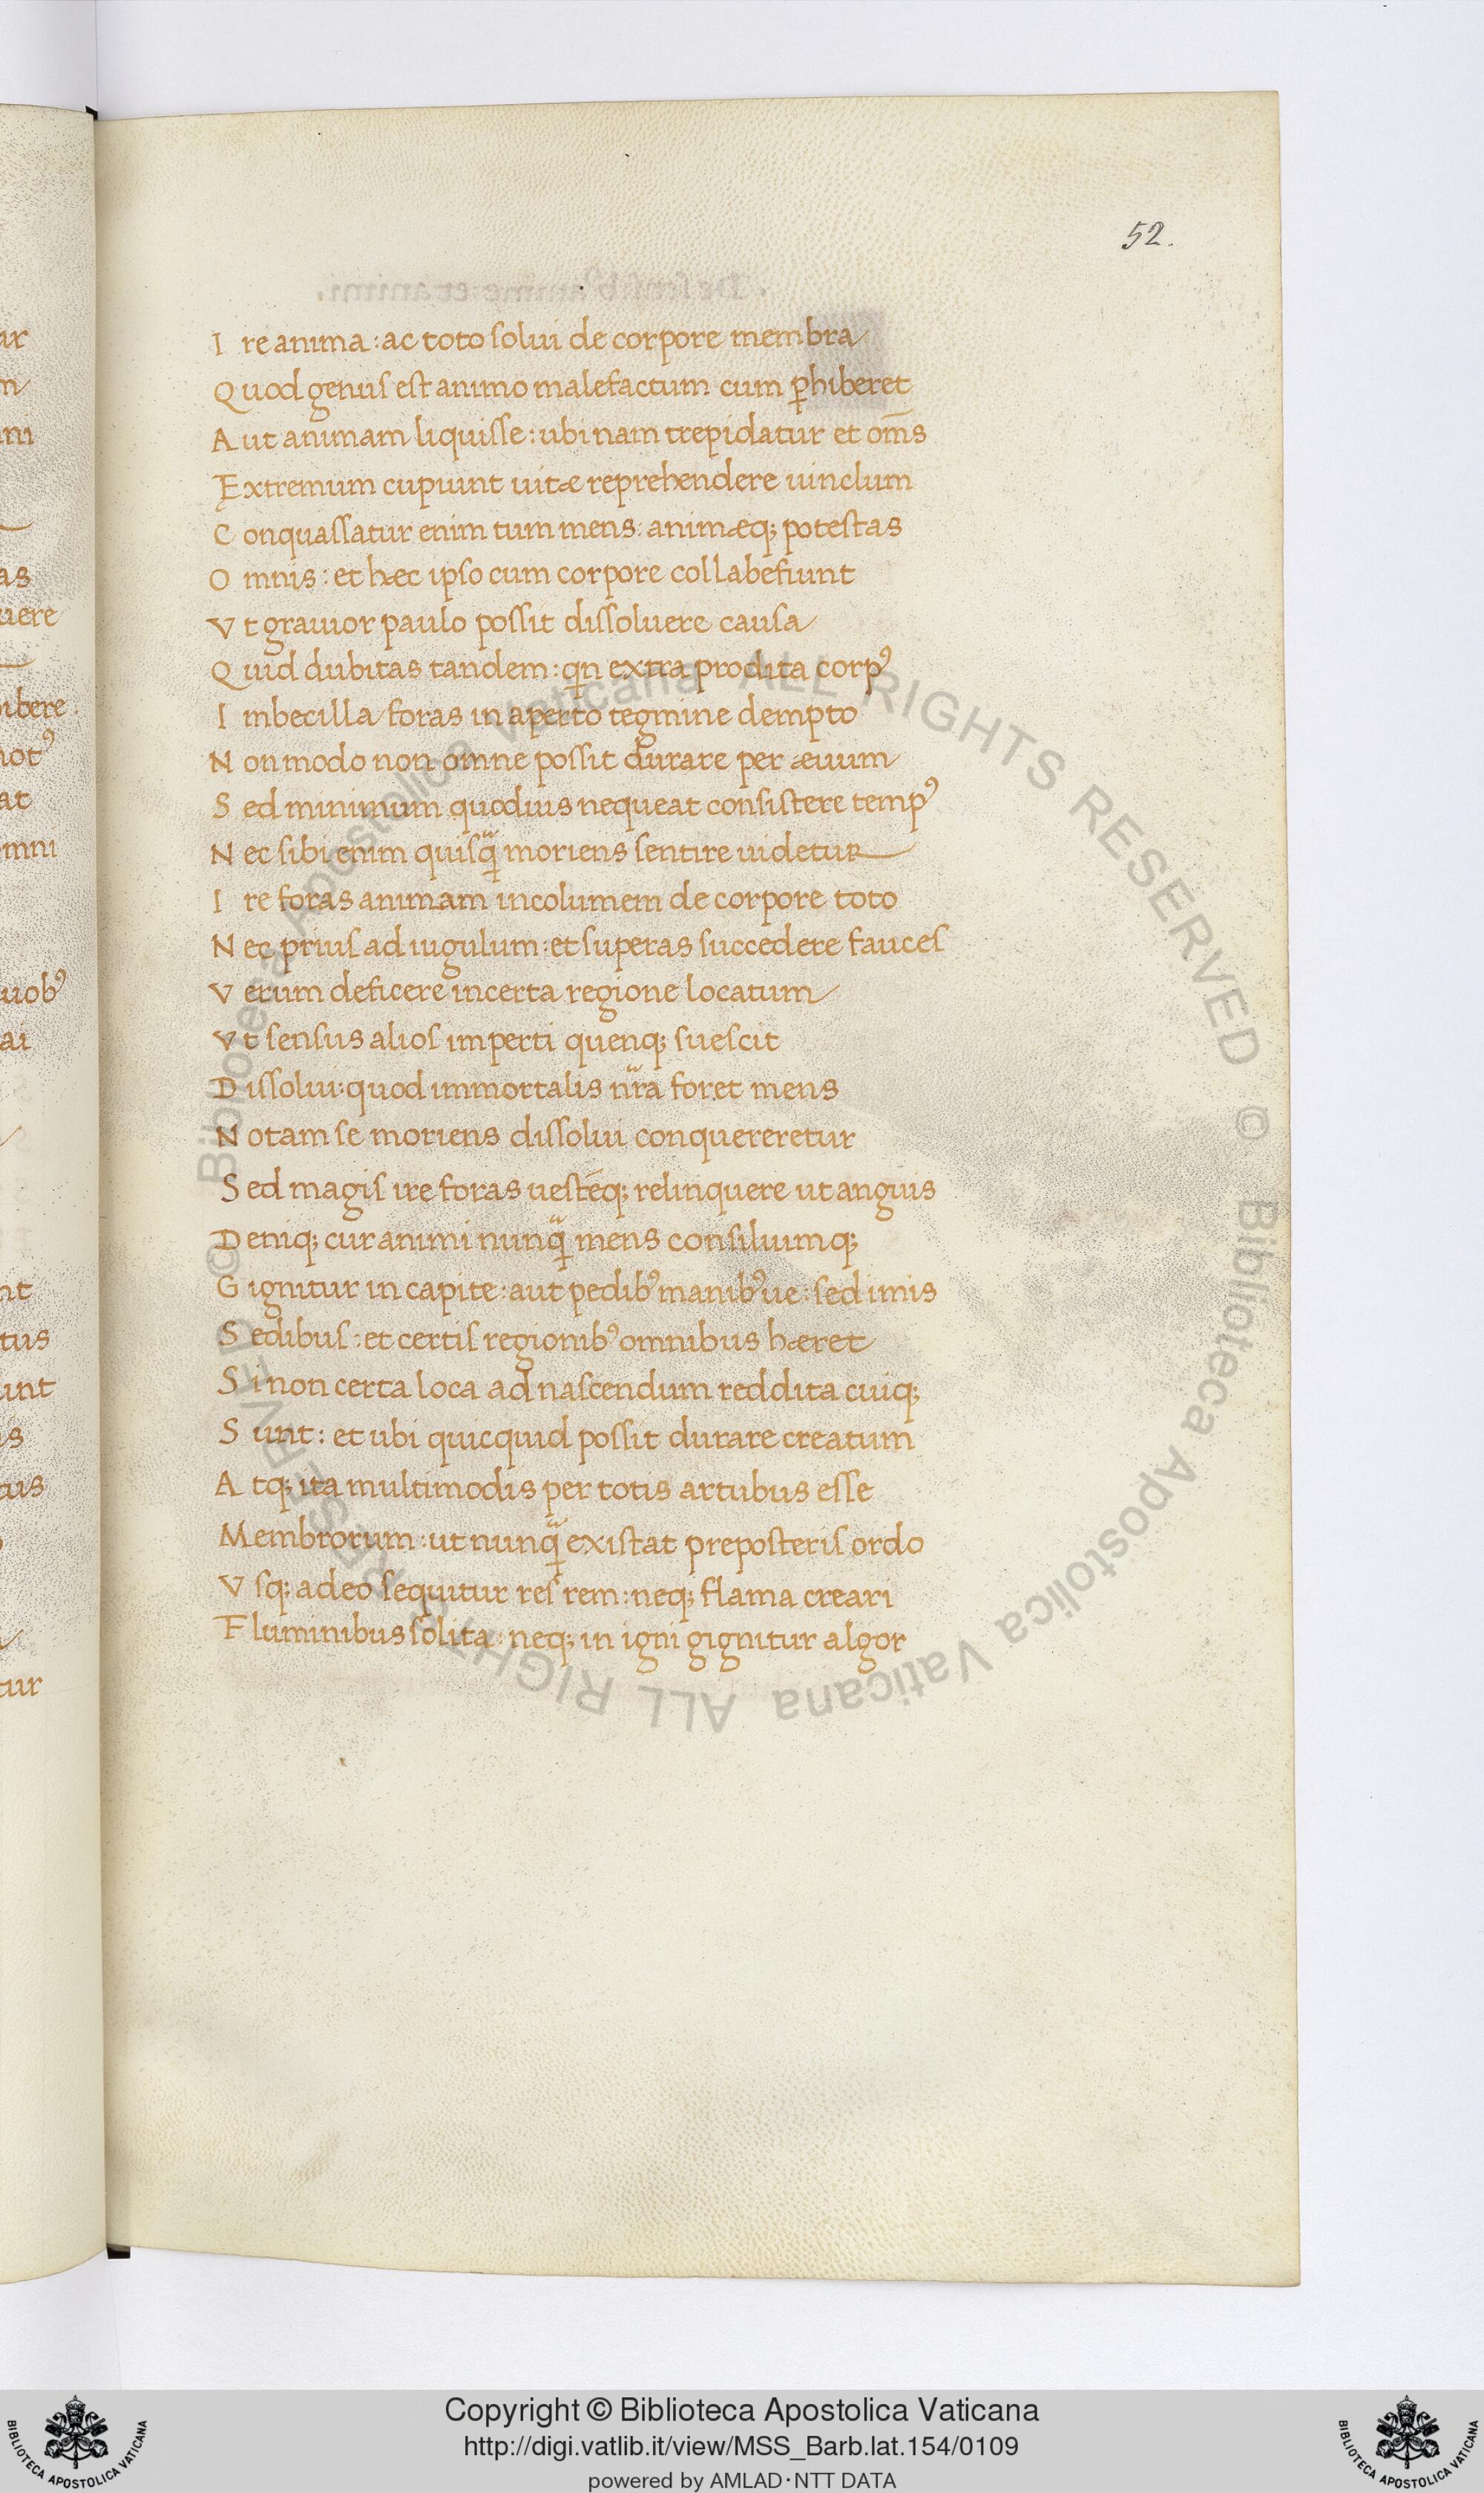 52.
Ire anima: ac toto solui de corpore membra
Quod genus est animo malefactum cum ꝑhiberet
Aut animam liquisse: ubi nam trepidatur et om̄s
Extremum cupiunt uitæ reprehendere uinclum
Conquassatur enim tum mens: animæq; potestas
Omnis: et hæc ipso cum corpore collabefiunt
Vt grauior paulo possit dissoluere causa
Quid dubitas tandem: qn extra prodita corpꝰ
Imbecilla foras in aperto tegmine dempto
Non modo non omne possit durare per æuum
Sed minimum quoduis nequeat consistere tempꝰ
Nec sibi enim quisq̃ moriens sentire uidetur
Ire foras animam incolumem de corpore toto
Nec prius ad iugulum: et superas succedere fauces
Verum deficere incerta regione locatum
Vt sensus alios imperti quenq; suescit
Dissolui: quod immortalis nr̃a foret mens
Notam se moriens dissolui conquereretur
Sed magis ire foras uestēq; relinquere ut anguis
Deniq; cur animi nunq̃ mens consiliumq;
Gignitur in capite: aut pedibꝰ manibꝰue: sed imis
Sedibus: et certis regionibꝰ omnibus hæret
Si non certa loca ad nascendum reddita cuiq;
Sunt: et ubi quicquid possit durare creatum
Atq; ita multimodis per totis artubus esse
Membrorum: ut nunq̃ existat preposteris ordo
Vsq; adeo sequitur res rem: neq; flama creari
Fluminibus solita: neq; in igni gignitur algor
© Biblioteca Apostolica Vaticana ALL RIGHTS RESERVED © Biblioteca Apostolica Vaticana ALL RIGHTS RESERVED
Copyright © Biblioteca Apostolica Vaticana
http://digi.vatlib.it/view/MSS_Barb.lat.154/0109
powered by AMLAD·NTT DATA
BIBLIOTECA APOSTOLICA VATICANA
BIBLIOTECA APOSTOLICA VATICANA